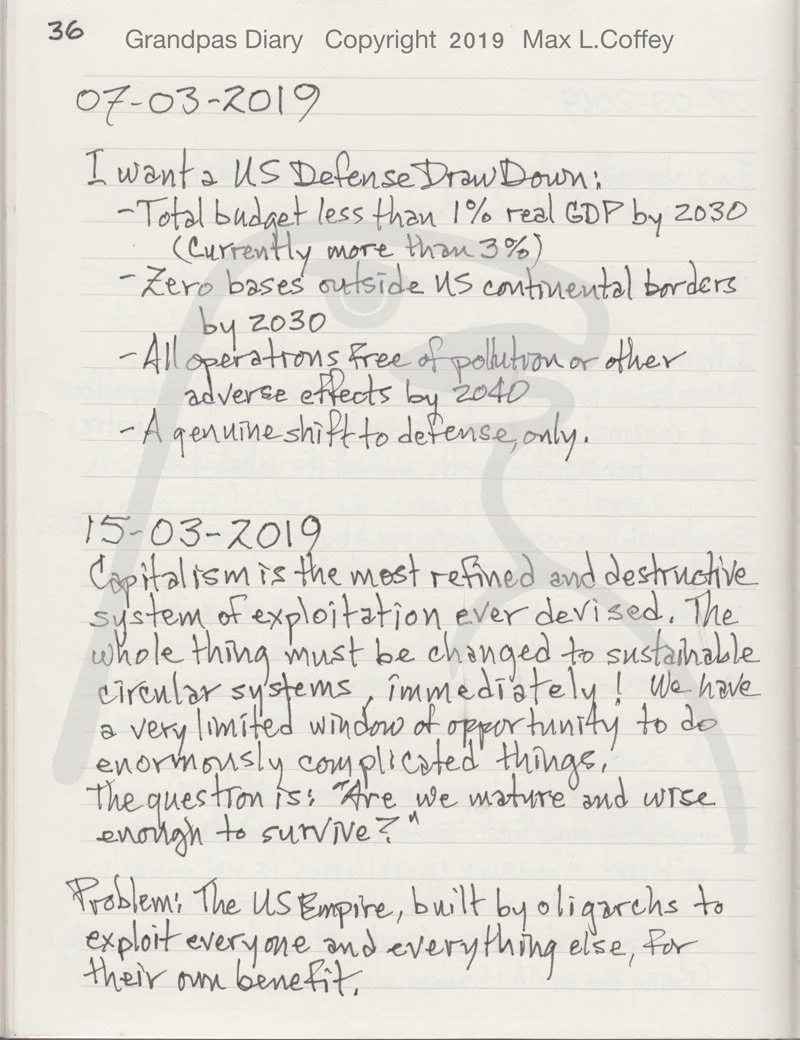 36
Grandpas Diary Copyright 2019 Max L.Coffey
07-03-2019
I want a US Defense DrawDown:
-Total budget less than 1% real GDP by 2030
(Currently more than 3%)
-Zero bases outside US continental borders
by 2030
-All operations free of pollution or other
adverse effects by 2040
-A genuine shift to defense, only.
15-03-2019
Capitalism is the most refined and destructive
system of exploitation ever devised. The
whole thing must be changed to sustainable
circular systems, immediately! We have
a very limited window of opportunity to do
enormously complicated things.
The question is: "Are we mature and wise
enough to survive?"
Problem: The US Empire, built by oligarchs to
exploit everyone and everything else, for
their own benefit.